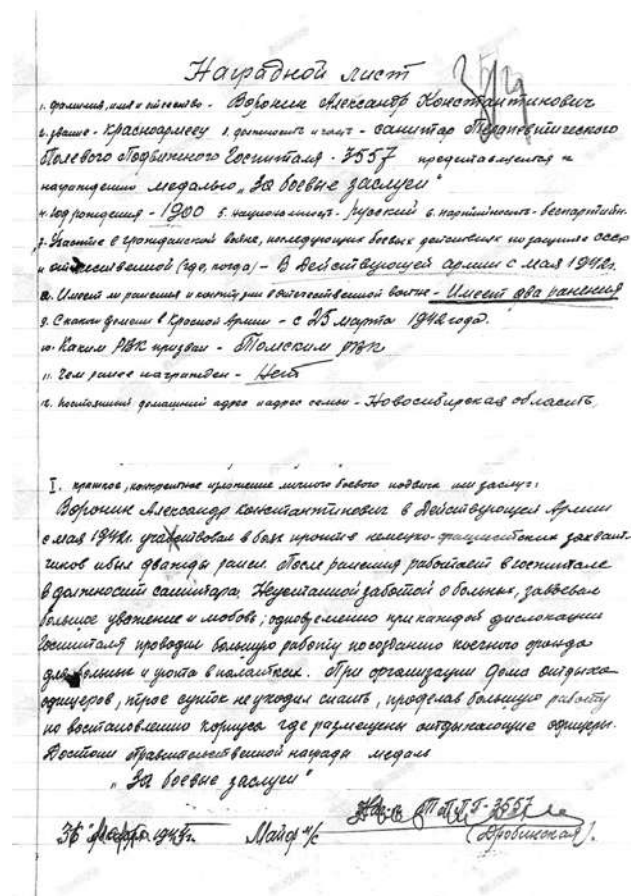 Наградной лист
1. фамилия, имя и отчество - Воронин Александр Константинович
2. звание - красноармеец 3. должность и часть - санитар Терапевтического
Полевого Подвижного Госпиталя - 3557 представляется к
награждению медалью "За боевые заслуги"
4. год рождения - 1900 5. национальность - русский 6. партийность - беспартийн.
7. Участие в гражданской войне, последующих боевых действиях по защите СССР
и отечественной (где, когда) - В действующей армии с мая 1942г.
8. Имеет ли ранения и контузии в отечественной войне - Имеет два ранения
9. С какого времени в Красной Армии - с 25 марта 1942 года.
10. Каким РВК призван - Томским РВК
11. Чем ранее награжден - Нет
12. Постоянный домашний адрес и адрес семьи - Новосибирская область,
I. краткое, конкретное изложение личного боевого подвига или заслуг:
Воронин Александр Константинович в Действующей Армии
с мая 1942г. участвовал в боях против немецко-фашистских захват-
чиков и был дважды ранен. После ранения работает в госпитале
в должности санитара. Неустанной заботой о больных, завоевал
большое уважение и любовь; одновременно при каждой дислокации
Госпиталя проводил большую работу по созданию коечного фонда
для больных и уюта в палатках. При организации Дома отдыха
офицеров, трое суток не уходил спать, проделав большую работу
по восстановлению корпуса где размещены отдыхающие офицеры.
Достоин Правительственной награды медаль
"За боевые заслуги"
Нач-к ТППГ-3557
1945г. Майор м/с (Дробинская).